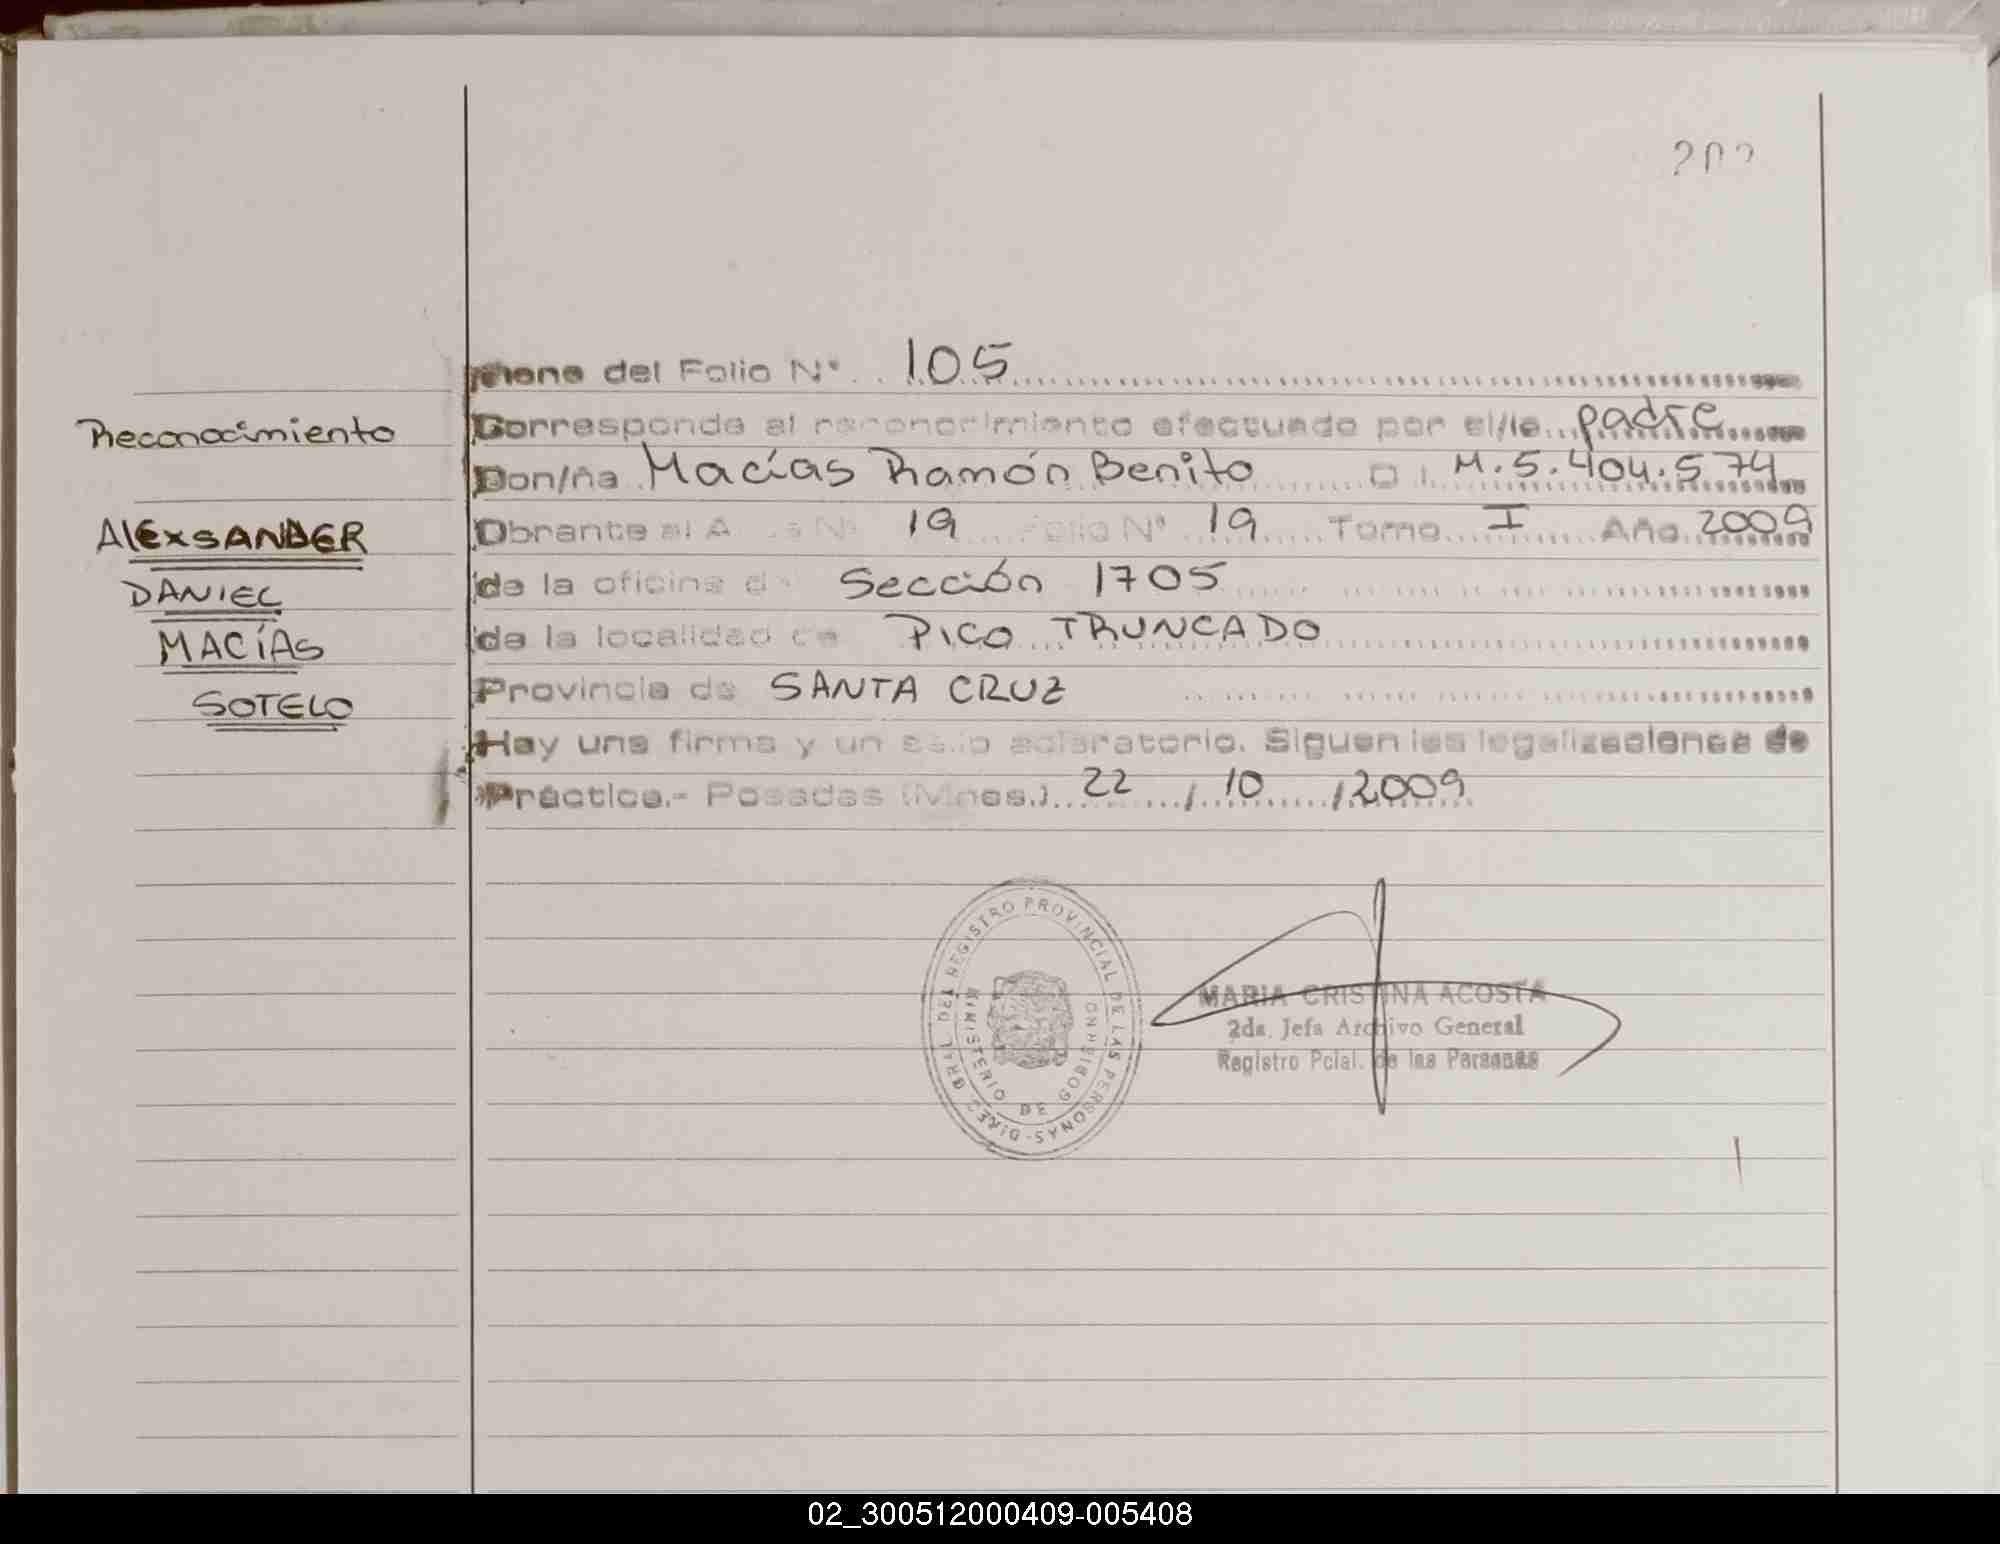 Viene del Folio Nº 105
Reconocimiento
Corresponde al reconocimiento efectuado por el/la padre
Don/ña Macías Ramón Benito D.I. M.5.404.574
AlExSANDER
Obrante al A Nº 19 Folio Nº 19 Tomo I Año 2009
DANIEL
de la oficina de Sección 1705
MACÍAS
de la localidad de PICO TRUNCADO
SOTELO
Provincia de SANTA CRUZ
Hay una firma y un sello aclaratorio. Siguen las legalizaciones de
Práctica.- Posadas (Mnes.) 22 / 10 / 2009
DIREC. GRAL DEL REGISTRO PROVINCIAL DE LAS PERSONAS-
MINISTERIO DE GOBIERNO
MARIA CRISTINA ACOSTA
2da. Jefa Archivo General
Registro Pcial. de las Personas
02_300512000409-005408